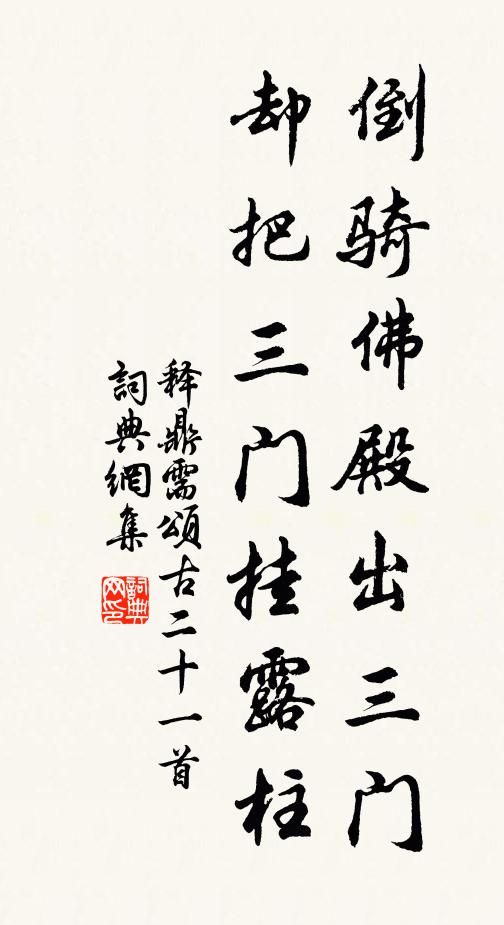 倒骑佛殿出三门
却把三门挂露柱
释鼎需颂古二十一首
詞典網集
詞典
网印